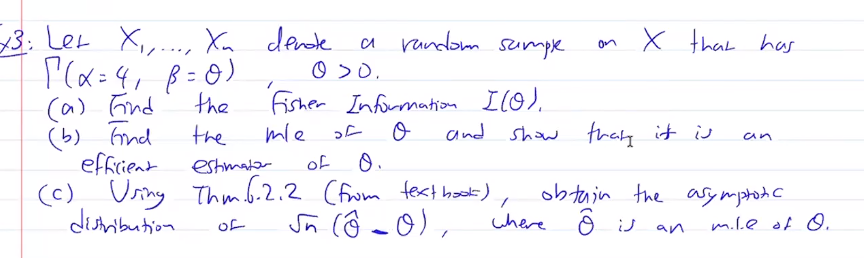 x3: Let X₁, ..., Xₙ denote a random sample on X that has
Γ(α=4, β=θ), θ>0.
(a) Find the Fisher Information I(θ).
(b) Find the mle of θ and show that it is an
efficient estimator of θ.
(c) Using Thm. 6.2.2 (from textbook), obtain the asymptotic
distribution of √n (θ̂ - θ), where θ̂ is an m.l.e of θ.